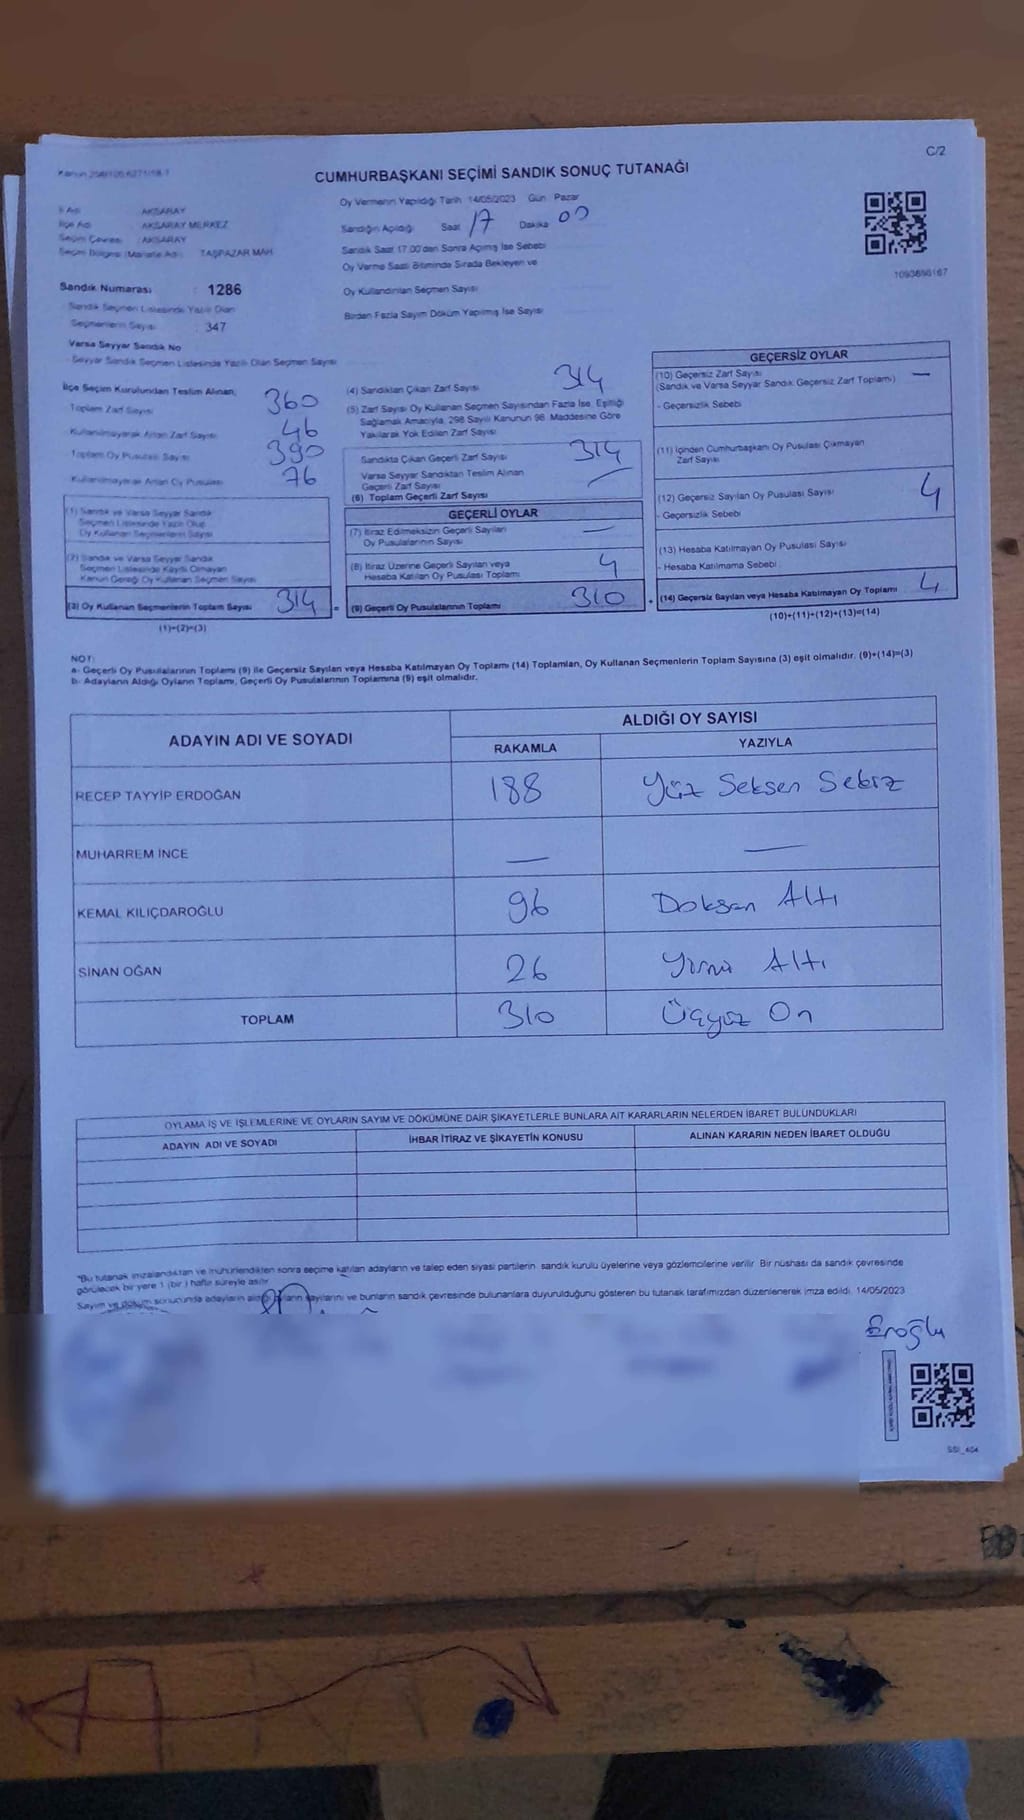 C/2
CUMHURBAŞKANI SEÇİMİ SANDIK SONUÇ TUTANAĞI
İli Adı : AKSARAY
İlçe Adı : AKSARAY MERKEZ
Seçim Çevresi : AKSARAY
Seçim Bölgesi (Mahalle Adı) : TAŞPAZAR MAH.
Sandık Numarası : 1286
Sandık Seçmen Listesinde Yazılı Olan
Seçmenlerin Sayısı : 347
Varsa Seyyar Sandık No
- Seyyar Sandık Seçmen Listesinde Yazılı Olan Seçmen Sayısı
Oy Vermenin Yapıldığı Tarih 14/05/2023 Gün Pazar
Sandığın Açıldığı Saat 17 Dakika 00
Sandık Saat 17.00'den Sonra Açılmış İse Sebebi
Oy Verme Saati Bitiminde Sırada Bekleyen ve
Oy Kullandırılan Seçmen Sayısı
Birden Fazla Sayım Döküm Yapılmış İse Sayısı
1093686167
İlçe Seçim Kurulundan Teslim Alınan;
Toplam Zarf Sayısı 360
Kullanılmayarak Artan Zarf Sayısı 46
Toplam Oy Pusulası Sayısı 390
Kullanılmayarak Artan Oy Pusulası 76
(1) Sandık ve Varsa Seyyar Sandık
Seçmen Listesinde Yazılı Olup
Oy Kullanan Seçmenlerin Sayısı
(2) Sandık ve Varsa Seyyar Sandık
Seçmen Listesinde Kaydı Olmayan
Kanun Gereği Oy Kullanan Seçmen Sayısı
(3) Oy Kullanan Seçmenlerin Toplam Sayısı 314 =
(1)+(2)=(3)
(4) Sandıktan Çıkan Zarf Sayısı 314
(5) Zarf Sayısı Oy Kullanan Seçmen Sayısından Fazla İse, Eşitliği
Sağlamak Amacıyla, 298 Sayılı Kanunun 98. Maddesine Göre
Yakılarak Yok Edilen Zarf Sayısı
Sandıkta Çıkan Geçerli Zarf Sayısı 314
Varsa Seyyar Sandıktan Teslim Alınan
Geçerli Zarf Sayısı —
(6) Toplam Geçerli Zarf Sayısı
GEÇERLİ OYLAR
(7) İtiraz Edilmeksizin Geçerli Sayılan
Oy Pusulalarının Sayısı —
(8) İtiraz Üzerine Geçerli Sayılan veya
Hesaba Katılan Oy Pusulası Toplamı 4
(9) Geçerli Oy Pusulalarının Toplamı 310 +
GEÇERSİZ OYLAR
(10) Geçersiz Zarf Sayısı —
(Sandık ve Varsa Seyyar Sandık Geçersiz Zarf Toplamı)
- Geçersizlik Sebebi
(11) İçinden Cumhurbaşkanı Oy Pusulası Çıkmayan
Zarf Sayısı
(12) Geçersiz Sayılan Oy Pusulası Sayısı 4
- Geçersizlik Sebebi
(13) Hesaba Katılmayan Oy Pusulası Sayısı
- Hesaba Katılmama Sebebi
(14) Geçersiz Sayılan veya Hesaba Katılmayan Oy Toplamı 4
(10)+(11)+(12)+(13)=(14)
NOT:
a- Geçerli Oy Pusulalarının Toplamı (9) ile Geçersiz Sayılan veya Hesaba Katılmayan Oy Toplamı (14) Toplamları, Oy Kullanan Seçmenlerin Toplam Sayısına (3) eşit olmalıdır. (9)+(14)=(3)
b- Adayların Aldığı Oyların Toplamı, Geçerli Oy Pusulalarının Toplamına (9) eşit olmalıdır.
ADAYIN ADI VE SOYADI
ALDIĞI OY SAYISI
RAKAMLA YAZIYLA
RECEP TAYYİP ERDOĞAN 188 Yüz Seksen Sekiz
MUHARREM İNCE — —
KEMAL KILIÇDAROĞLU 96 Doksan Altı
SİNAN OĞAN 26 Yirmi Altı
TOPLAM 310 Üçyüz On
OYLAMA İŞ VE İŞLEMLERİNE VE OYLARIN SAYIM VE DÖKÜMÜNE DAİR ŞİKAYETLERLE BUNLARA AİT KARARLARIN NELERDEN İBARET BULUNDUKLARI
ADAYIN ADI VE SOYADI İHBAR İTİRAZ VE ŞİKAYETİN KONUSU ALINAN KARARIN NEDEN İBARET OLDUĞU
"Bu tutanak imzalandıktan ve mühürlendikten sonra seçime katılan adayların ve talep eden siyasi partilerin sandık kurulu üyelerine veya gözlemcilerine verilir. Bir nüshası da sandık çevresinde
görülecek bir yere 1 (bir) hafta süreyle asılır.
Sayım ve döküm sonucunda adayların sayılarını ve bunların sandık çevresinde bulunanlara duyurulduğunu gösteren bu tutanak tarafımızdan düzenlenerek imza edildi. 14/05/2023
Eroğlu
SSI_404